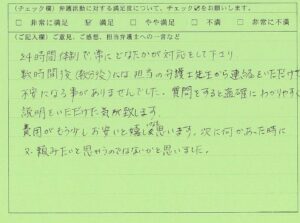 (チェック欄) 弁護活動に対する満足度について、チェック☑をお願いします。
□ 非常に満足 ☑ 満足 □ やや満足 □ 不満 □ 非常に不満
(ご記入欄) ご意見、ご感想、担当弁護士への一言など
24時間体制で、常にどなたかが対応をして下さり
数時間後(数分後)には担当の弁護士先生から連絡をいただけて
不安になる事がありませんでした。質問をすると的確にわかりやすく
説明をいただけた気が致します。
費用がもう少しお安いと嬉しく思います。次に何かあった時に
又、頼みたいと思うのではないかと思いました。